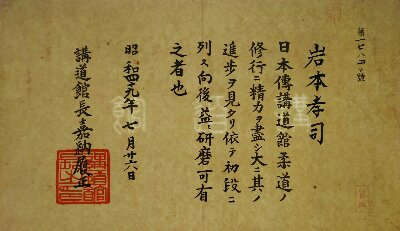 第一七八四〇號
岩本孝司
日本傳講道館柔道ノ
修行ニ精力ヲ盡シ大ニ其ノ
進歩ヲ見タリ依テ初段ニ
列ス向後益々研磨可有
之者也
昭和四九年七月廿六日
講道館長嘉納履正